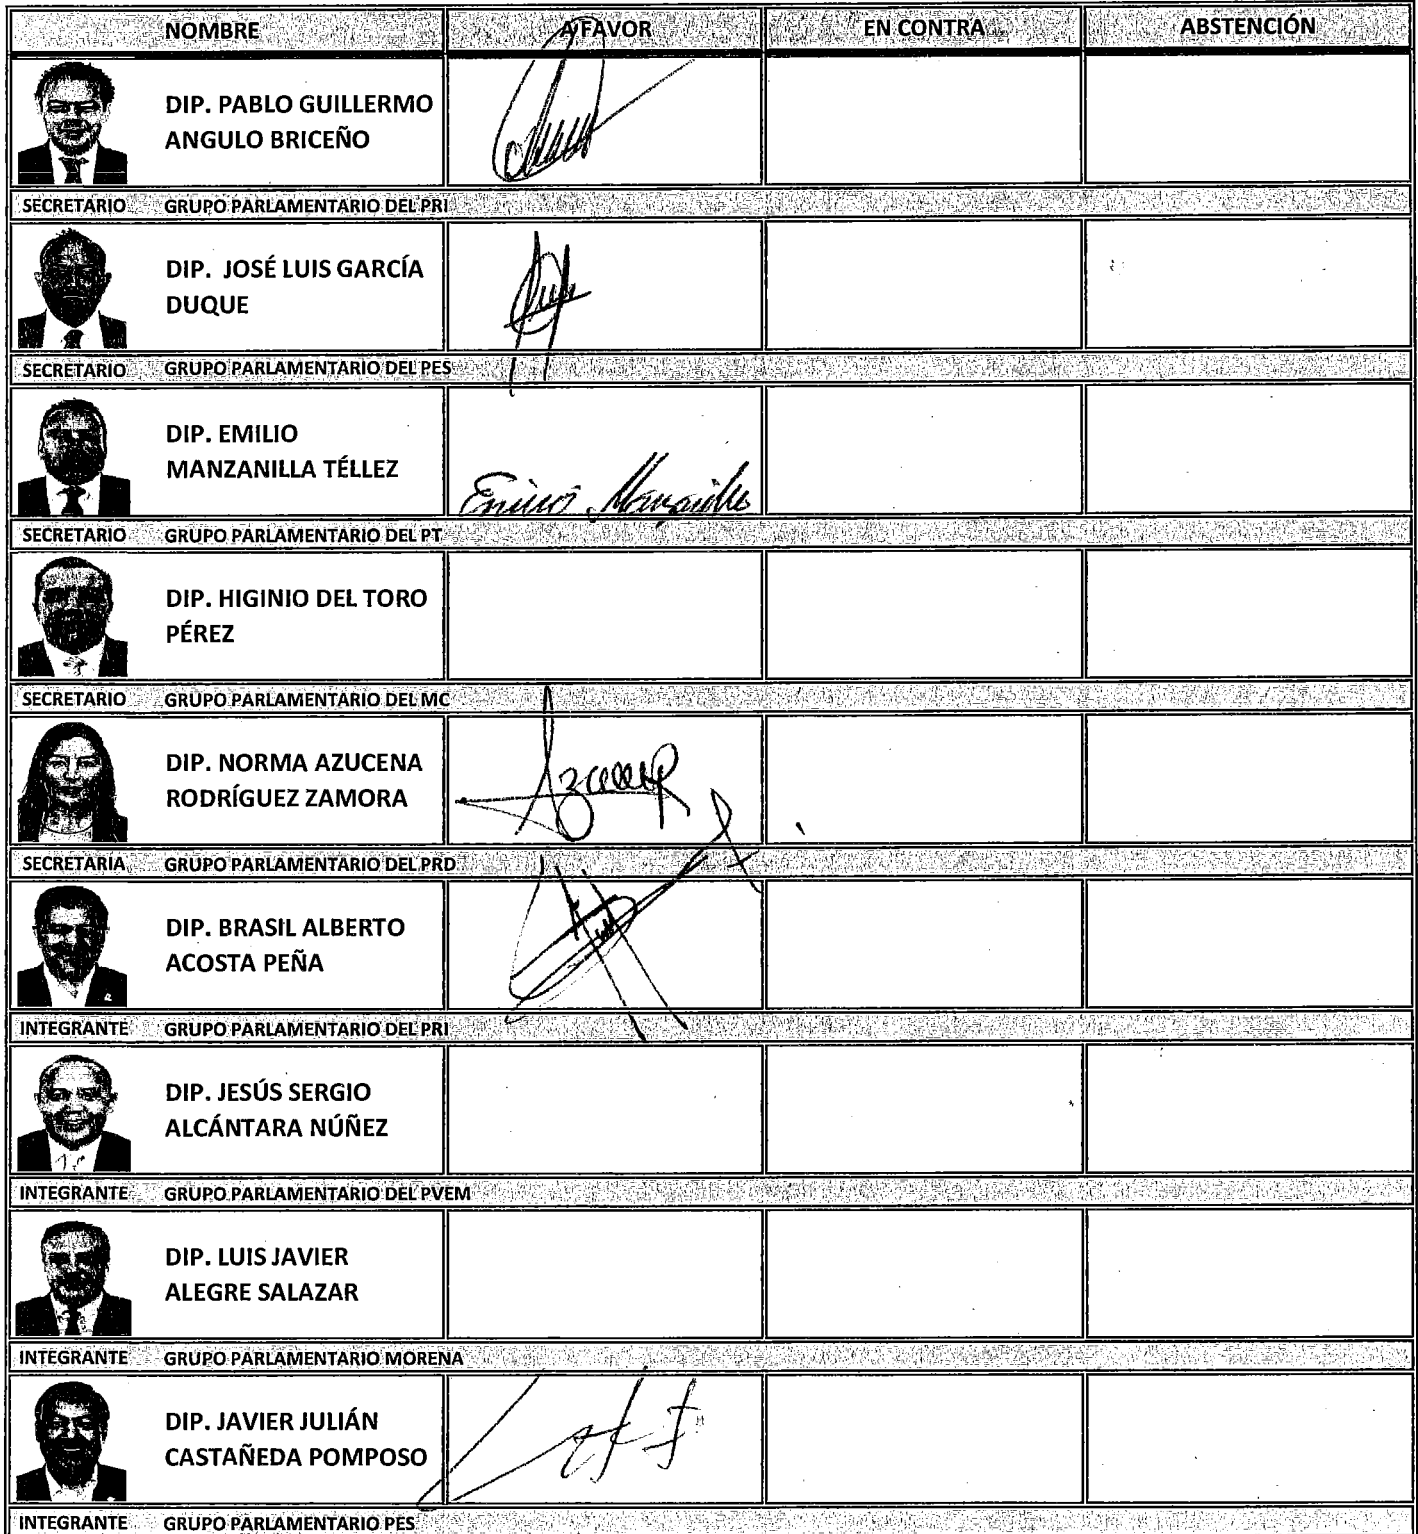 NOMBRE A FAVOR EN CONTRA ABSTENCIÓN
DIP. PABLO GUILLERMO
ANGULO BRICEÑO
SECRETARIO GRUPO PARLAMENTARIO DEL PRI
DIP. JOSÉ LUIS GARCÍA
DUQUE
SECRETARIO GRUPO PARLAMENTARIO DEL PES
DIP. EMILIO
MANZANILLA TÉLLEZ
Emilio Manzanilla
SECRETARIO GRUPO PARLAMENTARIO DEL PT
DIP. HIGINIO DEL TORO
PÉREZ
SECRETARIO GRUPO PARLAMENTARIO DEL MC
DIP. NORMA AZUCENA
RODRÍGUEZ ZAMORA
SECRETARIA GRUPO PARLAMENTARIO DEL PRD
DIP. BRASIL ALBERTO
ACOSTA PEÑA
INTEGRANTE GRUPO PARLAMENTARIO DEL PRI
DIP. JESÚS SERGIO
ALCÁNTARA NÚÑEZ
INTEGRANTE GRUPO PARLAMENTARIO DEL PVEM
DIP. LUIS JAVIER
ALEGRE SALAZAR
INTEGRANTE GRUPO PARLAMENTARIO MORENA
DIP. JAVIER JULIÁN
CASTAÑEDA POMPOSO
INTEGRANTE GRUPO PARLAMENTARIO PES